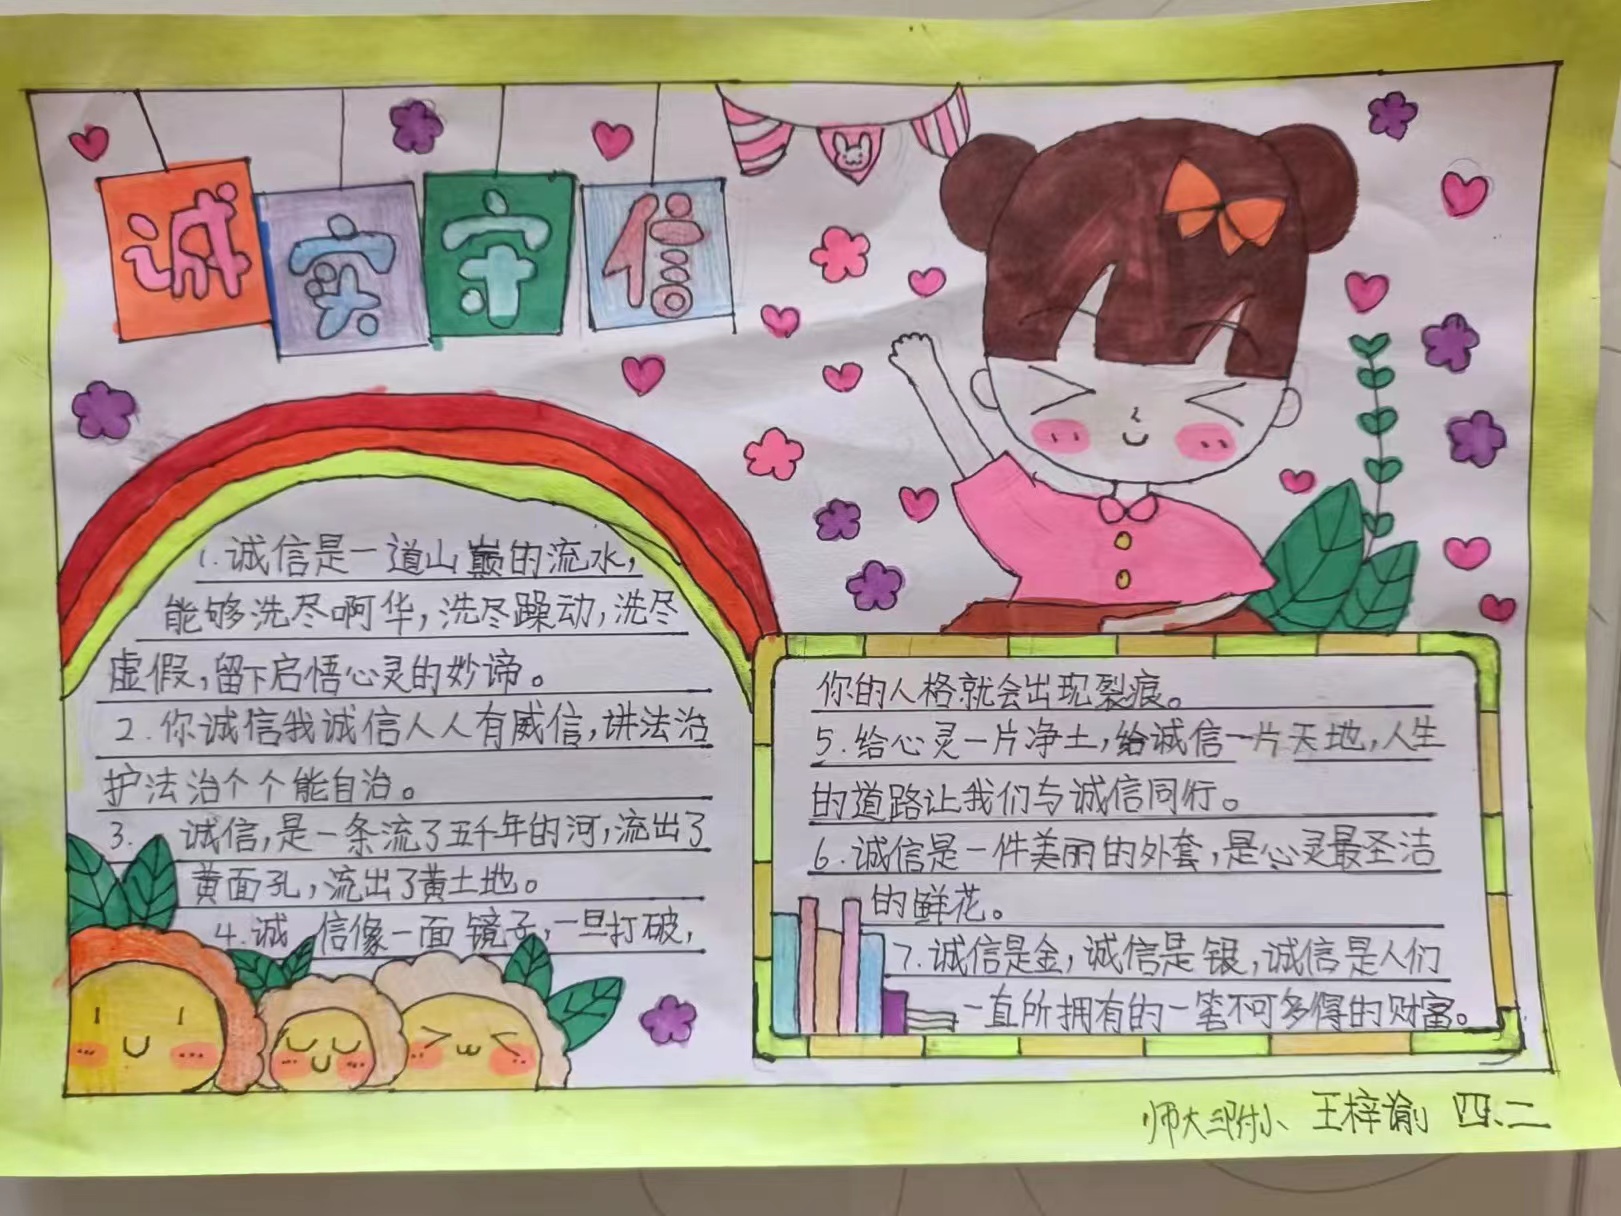 诚实守信
1.诚信是一道山巅的流水,
能够洗尽啊华,洗尽躁动,洗尽
虚假,留下启悟心灵的妙谛。
2.你诚信我诚信人人有威信,讲法治
护法治个个能自治。
3. 诚信,是一条流了五千年的河,流出了
黄面孔,流出了黄土地。
4.诚信像一面镜子,一旦打破,
你的人格就会出现裂痕。
5.给心灵一片净土,给诚信一片天地,人生
的道路让我们与诚信同行。
6.诚信是一件美丽的外套,是心灵最圣洁
的鲜花。
7.诚信是金,诚信是银,诚信是人们
一直所拥有的一笔不可多得的财富。
师大三附小 王梓谕 四、二